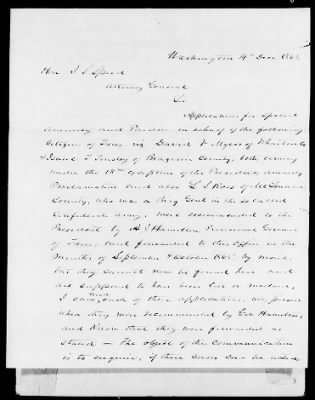 Washington 14th Dec 1865
Hon J. S. Speed
Attorney General
Sir
Applications for Special
Amnesty and Pardon in behalf of the following
Citizens of Texas viz David Myers of
& Isaac T. Tinsley of Brazoria County, both coming
under the 13th exception of the Presidents Amnesty
Proclamation and also L. S. Ross of McLennan
County, who was a Brig Genl in the so called
Confederate Army, were recommended to the
President by A. J. Hamilton Provisional Governor
of Texas, and forwarded to this Office in the
Months of September & October 1865 by mail
but they cannot now be found here and
are supposed to have been lost or mislaid,
I saw each of these applications in person
when they were recommended by Gov Hamilton,
and know that they were forwarded as
stated — The object of this Communication
is to enquire, if these cases can be acted